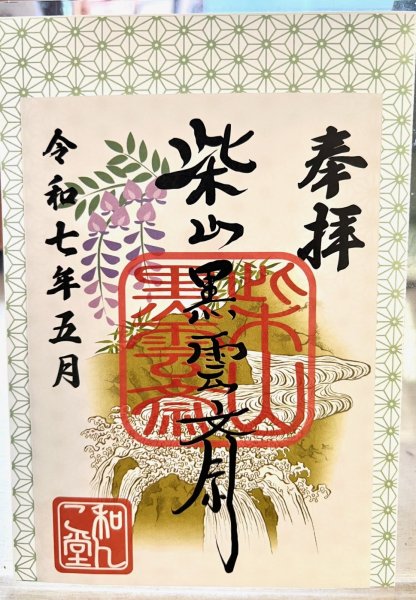 奉拝
柴山黒雲斎
柴山
黒雲斎
令和七年五月
和ん
こ堂